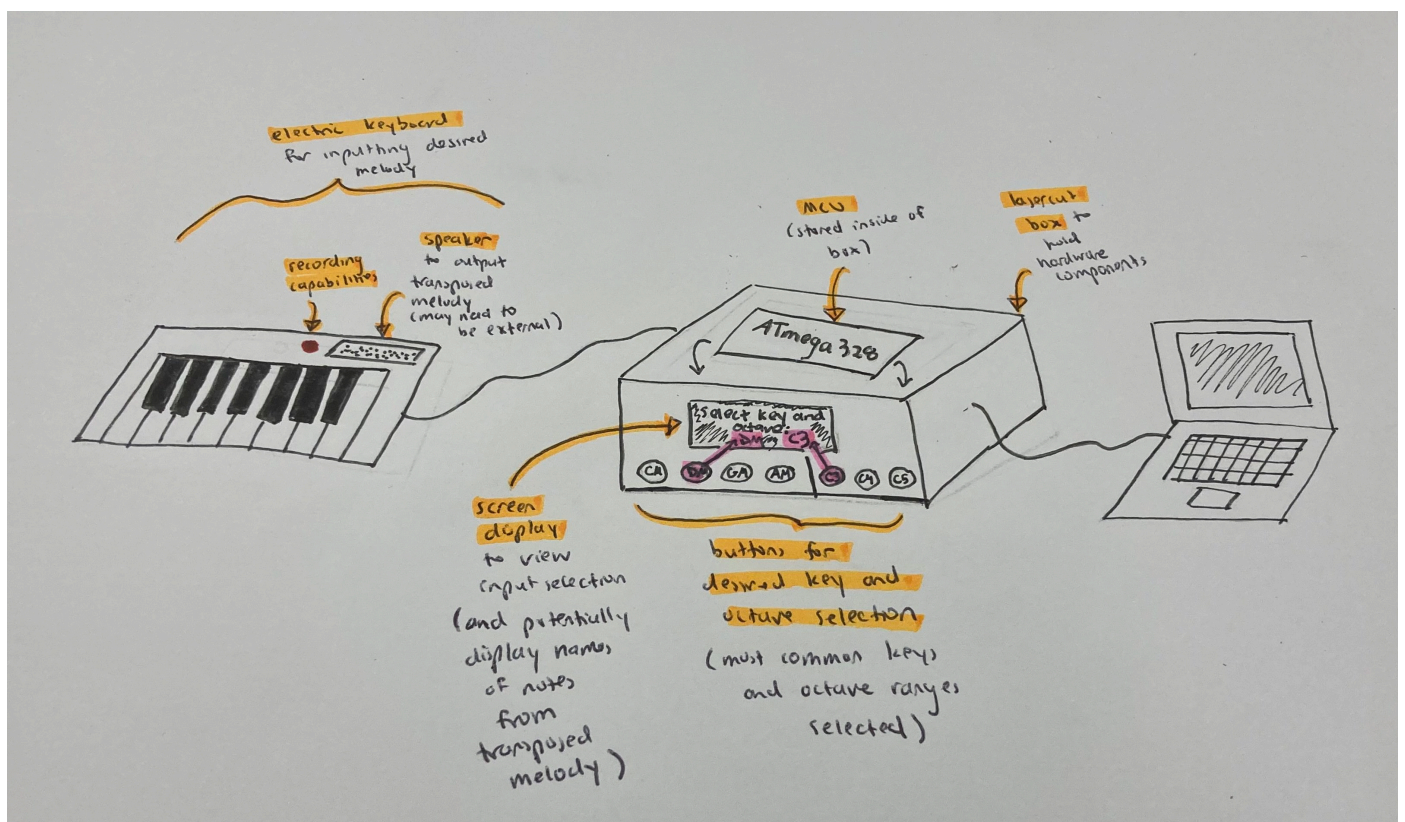 electric keyboard
for inputting desired
melody
recording
capabilities
speaker
to output
transposed
melody
(may need to
be external)
MCU
(stored inside of
box)
lasercut
box to
hold
hardware
components
ATmega 328
Select key and
octave:
DM C3
CM DM GM AM C3 C4 C5
screen
display
to view
input selection
(and potentially
display names
of notes
from
transposed
melody)
buttons for
desired key and
octave selection
(most common keys
and octave ranges
selected)